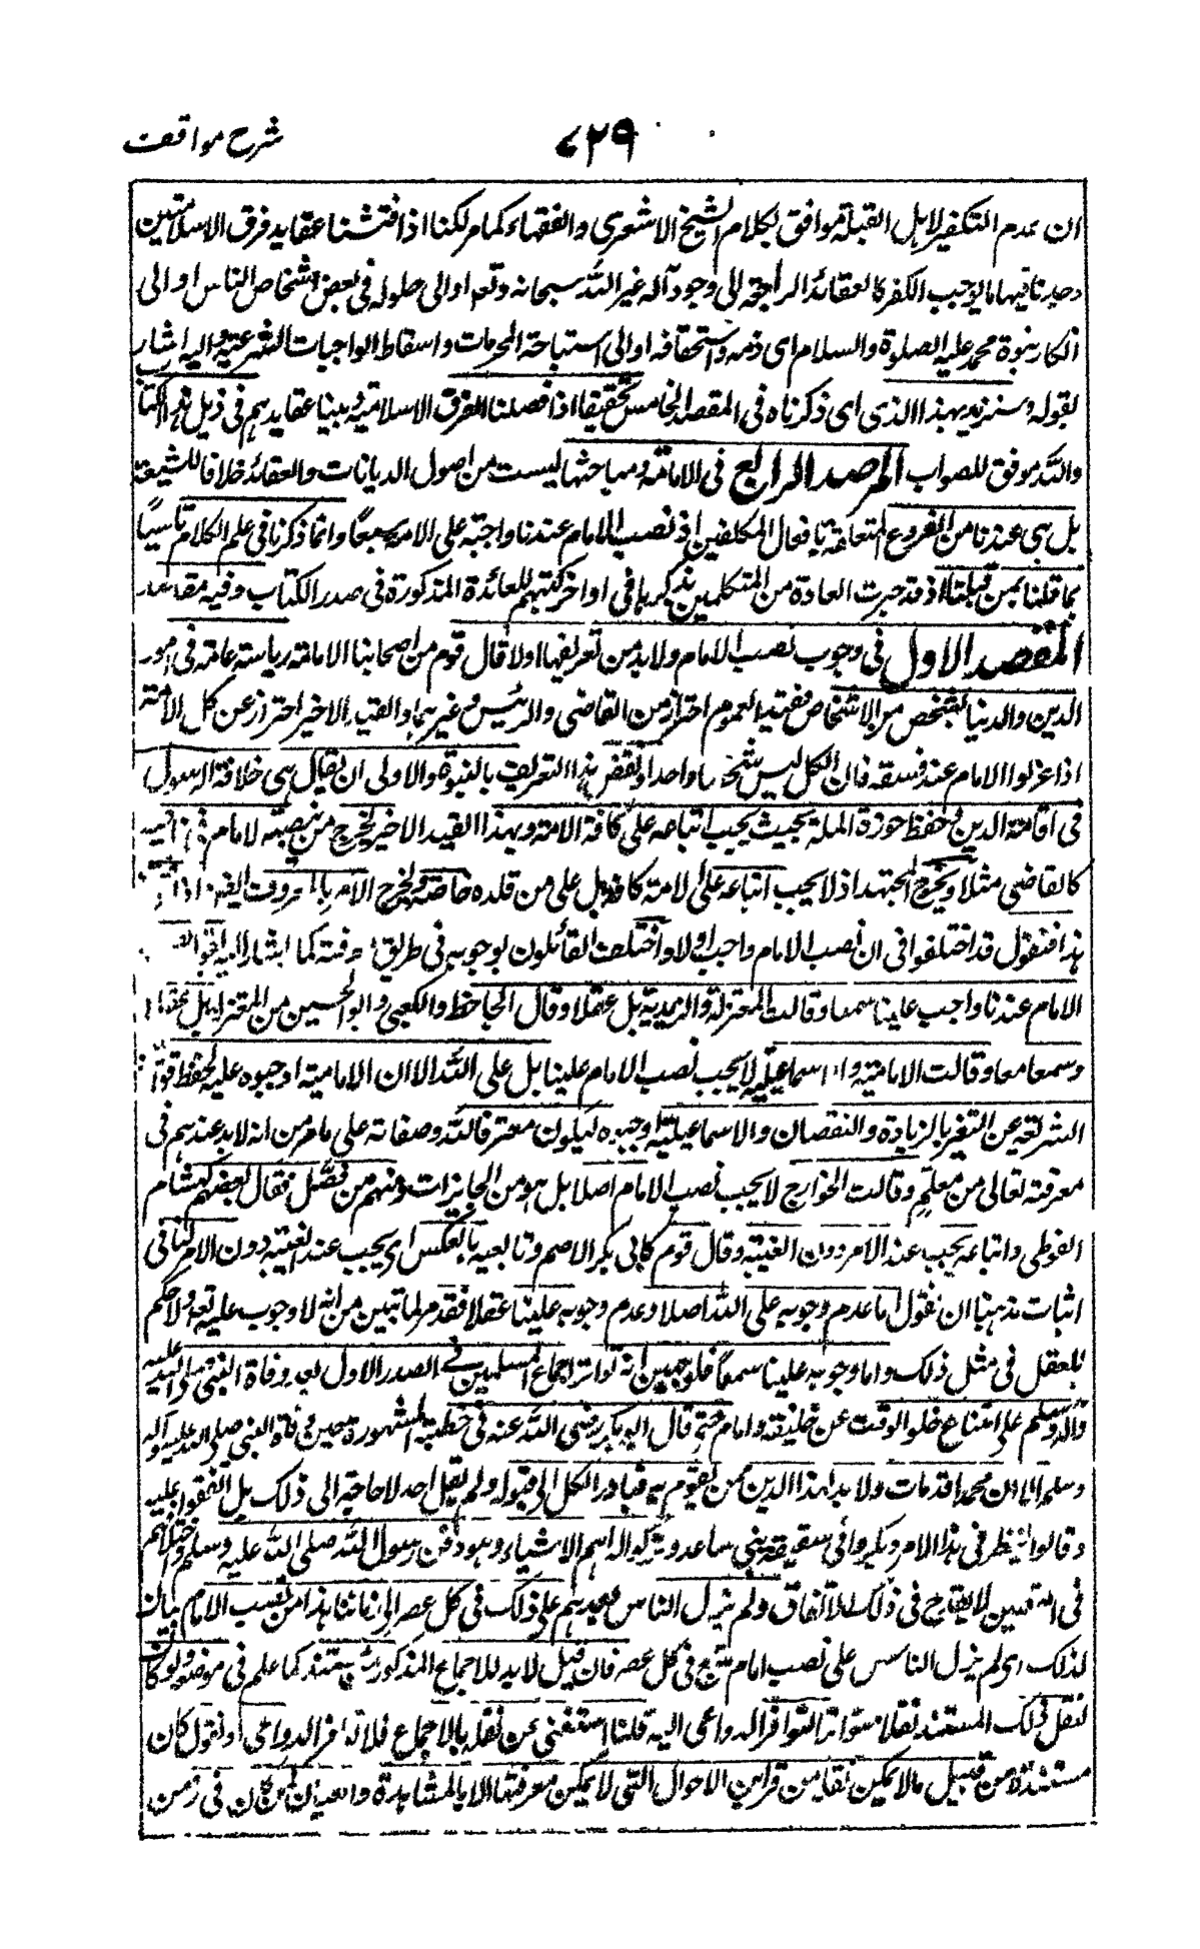 شرح مواقف
٧٢٩
ان عدم التكفير لاهل القبلة موافق لكلام الشيخ الاشعرى والفقهاء كما مر لكنا اذا فتشنا عقايد فرق الاسلاميين
وجدنا فيها ما يوجب الكفر كالعقائد الراجعة الى وجود آله غير الله سبحانه وتعه او الى حلوله فى بعض اشخاص الناس او الى
انكار نبوة محمد عليه الصلوة والسلام اى ذمه واستخفافه او الى استباحة المحرمات واسقاط الواجبات الشرعية واليه اشار
بقوله وسنزيد بهذا الذى اى ذكرناه فى المقصد الخامس تحقيقا اذا فصلنا الفرق الاسلامية وبينا عقايدهم فى ذيل هذا الكتاب
والله موفق للصواب المرصد الرابع فى الامامة ومباحثها ليست من اصول الديانات والعقائد خلافا للشيعة
بل هى عندنا من الفروع المتعلقة بافعال المكلفين اذ نصب الامام عندنا واجبة على الامة سمعا وانما ذكرنا فى علم الكلام تاسيا
بما قلنا بمن قبلنا اذ قد جرت العادة من المتكلمين بذكرها فى اواخر كتبهم للعائدة المذكورة فى صدر الكتاب وفيه مقاصد
المقصد الاول فى وجوب نصب الامام ولا بد من تعريفها اولا قال قوم من اصحابنا الامامة رياسة عامة فى امور
الدين والدنيا لشخص من الاشخاص فقيد العموم احتراز من القاضى والرئيس وغيرهما والقيد الاخير احتراز عن كل الامة
اذا عزلوا الامام عند فسقه فان الكل ليس شخصا واحدا ونقض هذا التعريف بالنبوة والاولى ان يقال هى خلافة الرسول
فى اقامة الدين وحفظ حوزة الملة بحيث يجب اتباعه على كافة الامة وبهذا القيد الاخير يخرج من ينصبه الامام فى ناحية
كالقاضى مثلا ويخرج المجتهد اذ لا يجب اتباعه على الامة كافة بل على من قلده خاصة ويخرج الامر بالمعروف ايضا اذا
هذا فنقول قد اختلفوا فى ان نصب الامام واجب اولا واختلف القائلون بوجوبه فى طريق معرفته كما اشار اليه بقوله
الامام عندنا واجب علينا سمعا وقالت المعتزلة والزيدية بل عقلا وقال الجاحظ والكعبى وابو الحسين من المعتزلة بل عقلا
وسمعا معا وقالت الامامية والاسماعيلية لا يجب نصب الامام علينا بل على الله الا ان الامامية اوجبوه عليه لحفظ قوانين
الشريعة عن التغير بالزيادة والنقصان والاسماعيلية اوجبوه ليكون معترفا لله وصفاته على ما مر من انه لا بد عندهم فى
معرفته تعالى من معلم وقالت الخوارج لا يجب نصب الامام اصلا بل هو من الجايزات ومنهم من فصل فقال بعضهم كهشام
الفوطى واتباعه يجب عند الامر دون الغيبة وقال قوم كابى بكر الاصم وتابعيه بالعكس اى يجب عند الغيبة دون الامر لنا فى
اثبات مذهبنا ان نقول اما عدم وجوبه على الله اصلا وعدم وجوبه علينا عقلا فقد مر لما تبين من انه لا وجوب عليه تعه ولا حكم
للعقل فى مثل ذلك واما وجوبه علينا سمعا فلوجهين انه تواتر اجماع المسلمين فى الصدر الاول بعد وفاة النبى صلى الله عليه
وآله وسلم على امتناع خلو الوقت عن خليفة وامام حتى قال ابو بكر رضى الله عنه فى خطبته المشهورة حين وفاة النبى صلى الله عليه وآله
وسلم الا ان محمدا قد مات ولا بد لهذا الدين ممن يقوم به فبادر الكل الى قبوله ولم يقل احد لا حاجة الى ذلك بل اتفقوا عليه
وقالوا ننظر فى هذا الامر وبكروا فى سقيفة بنى ساعدة وتركوا له اهم الاشياء وهو دفن رسول الله صلى الله عليه وسلم واختلافهم
فى التعيين لا يقدح فى ذلك الاتفاق ولم يزل الناس بعدهم على ذلك فى كل عصر الى زماننا هذا من نصب الامام بيان
لذلك اى لم يزل الناس على نصب امام متبع فى كل عصر فان قيل لا بد للاجماع المذكور من مستند كما علم فى موضعه ولو كان
لنقل ذلك المستند نقلا متواترا لتوافر الدواعى اليه قلنا استغنى عن نقله بالاجماع فلا توافر الدواعى او نقول كان
مستنده من قبيل ما لا يمكن نقله من قراين الاحوال التى لا يمكن معرفتها الا بالمشاهدة والعيان لمن كان فى زمن